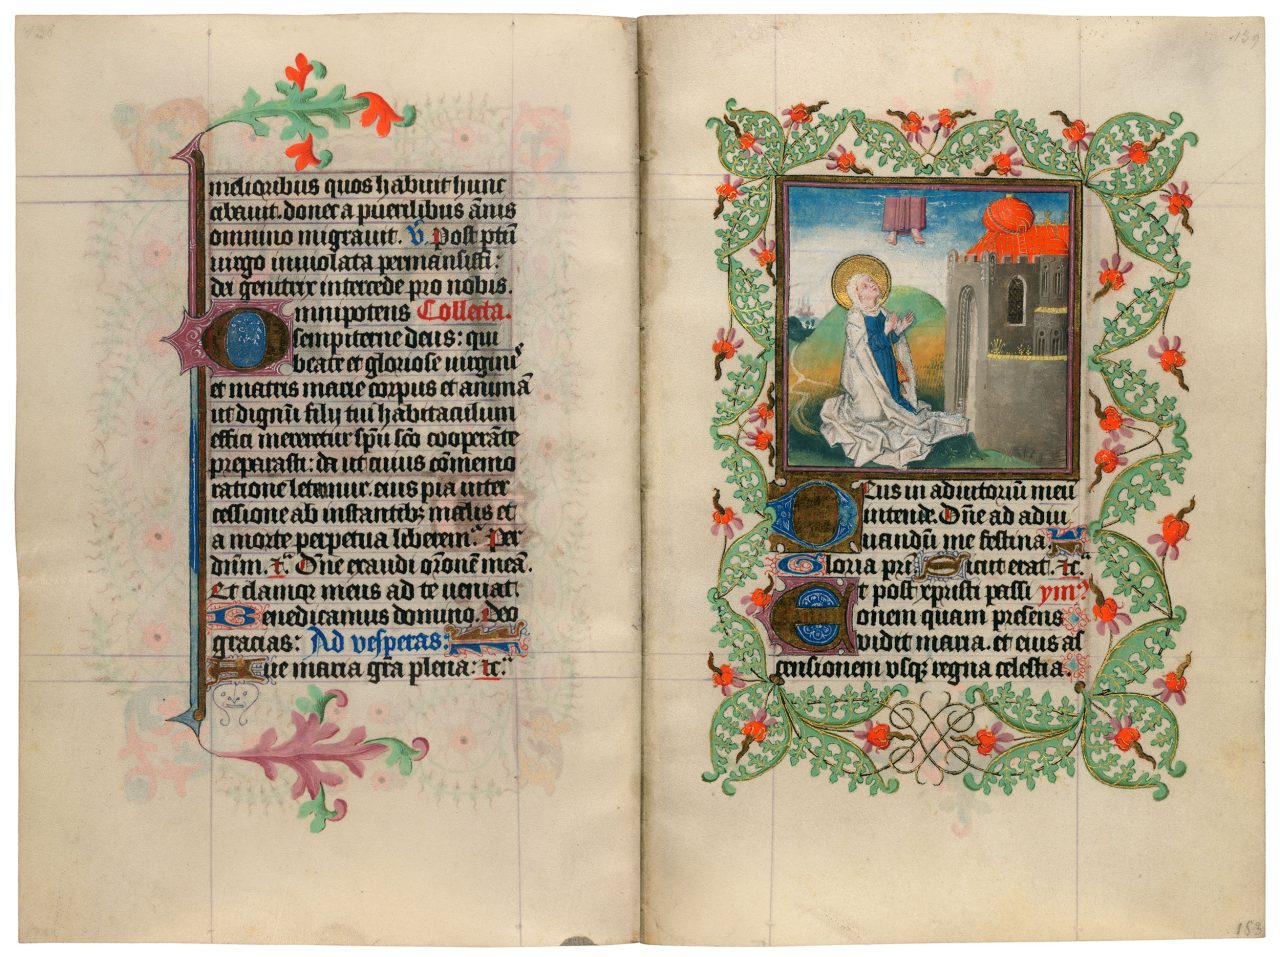 melioribus quos habuit hunc
cibauit. donec a puerilibus ānis
omnino migrauit. ꝟ. Post ptū
uirgo inuiolata permansisti:
dei genitrix intercede pro nobis.
Omnipotens Collecta.
sempiterne deus: qui
beate et gloriose uirginis
et matris marie corpus et animā
ut dignū filij tui habitaculum
effici mereretur spū scō cooperāte
preparasti: da ut cuius cōmemo
ratione letamur. eius pia inter
cessione ab instantibꝫ malis et
a morte perpetua liberem̄. Per
dnm̄. ꝛc̄. Dn̄e exaudi orōnem meā.
Et clamor meus ad te ueniat.
Benedicamus domino. Deo
gracias: Ad vesperas:
Aue maria grā plena: ꝛc̄.
139
Deus in adiutoriū meū
intende. Dn̄e ad adiu
uandū me festina.
Gloria pri Sicut erat. ꝛc̄.
Et post xpristi passi ymꝰ
onem quam presens
vidit maria. et eius as
censionem vsqꝫ regna celestia.
153